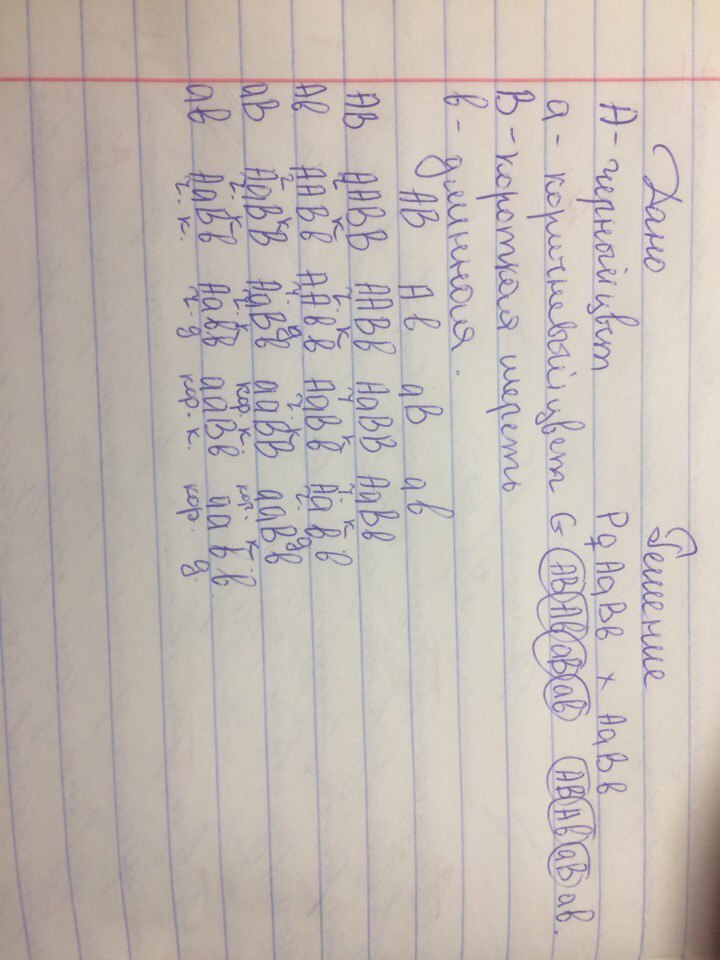 Дано Решение
А - черный цвет P ♀ АаВв × АаВв
а - коричневый цвет G АВ Ав аВ ав АВ Ав аВ ав.
В - короткая шерсть
в - длинная.
АВ Ав аВ ав
АВ ААВВ ААВв АаВВ АаВв
ч к ч. к ч к ч. к
Ав ААВв ААвв АаВв Аавв
ч к ч. д ч. к ч. д
аВ АаВВ АаВв ааВВ ааВв
ч. к ч. к кор. к. кор. к
ав АаВв Аавв ааВв аавв
ч. к. ч. д кор. к. кор. д